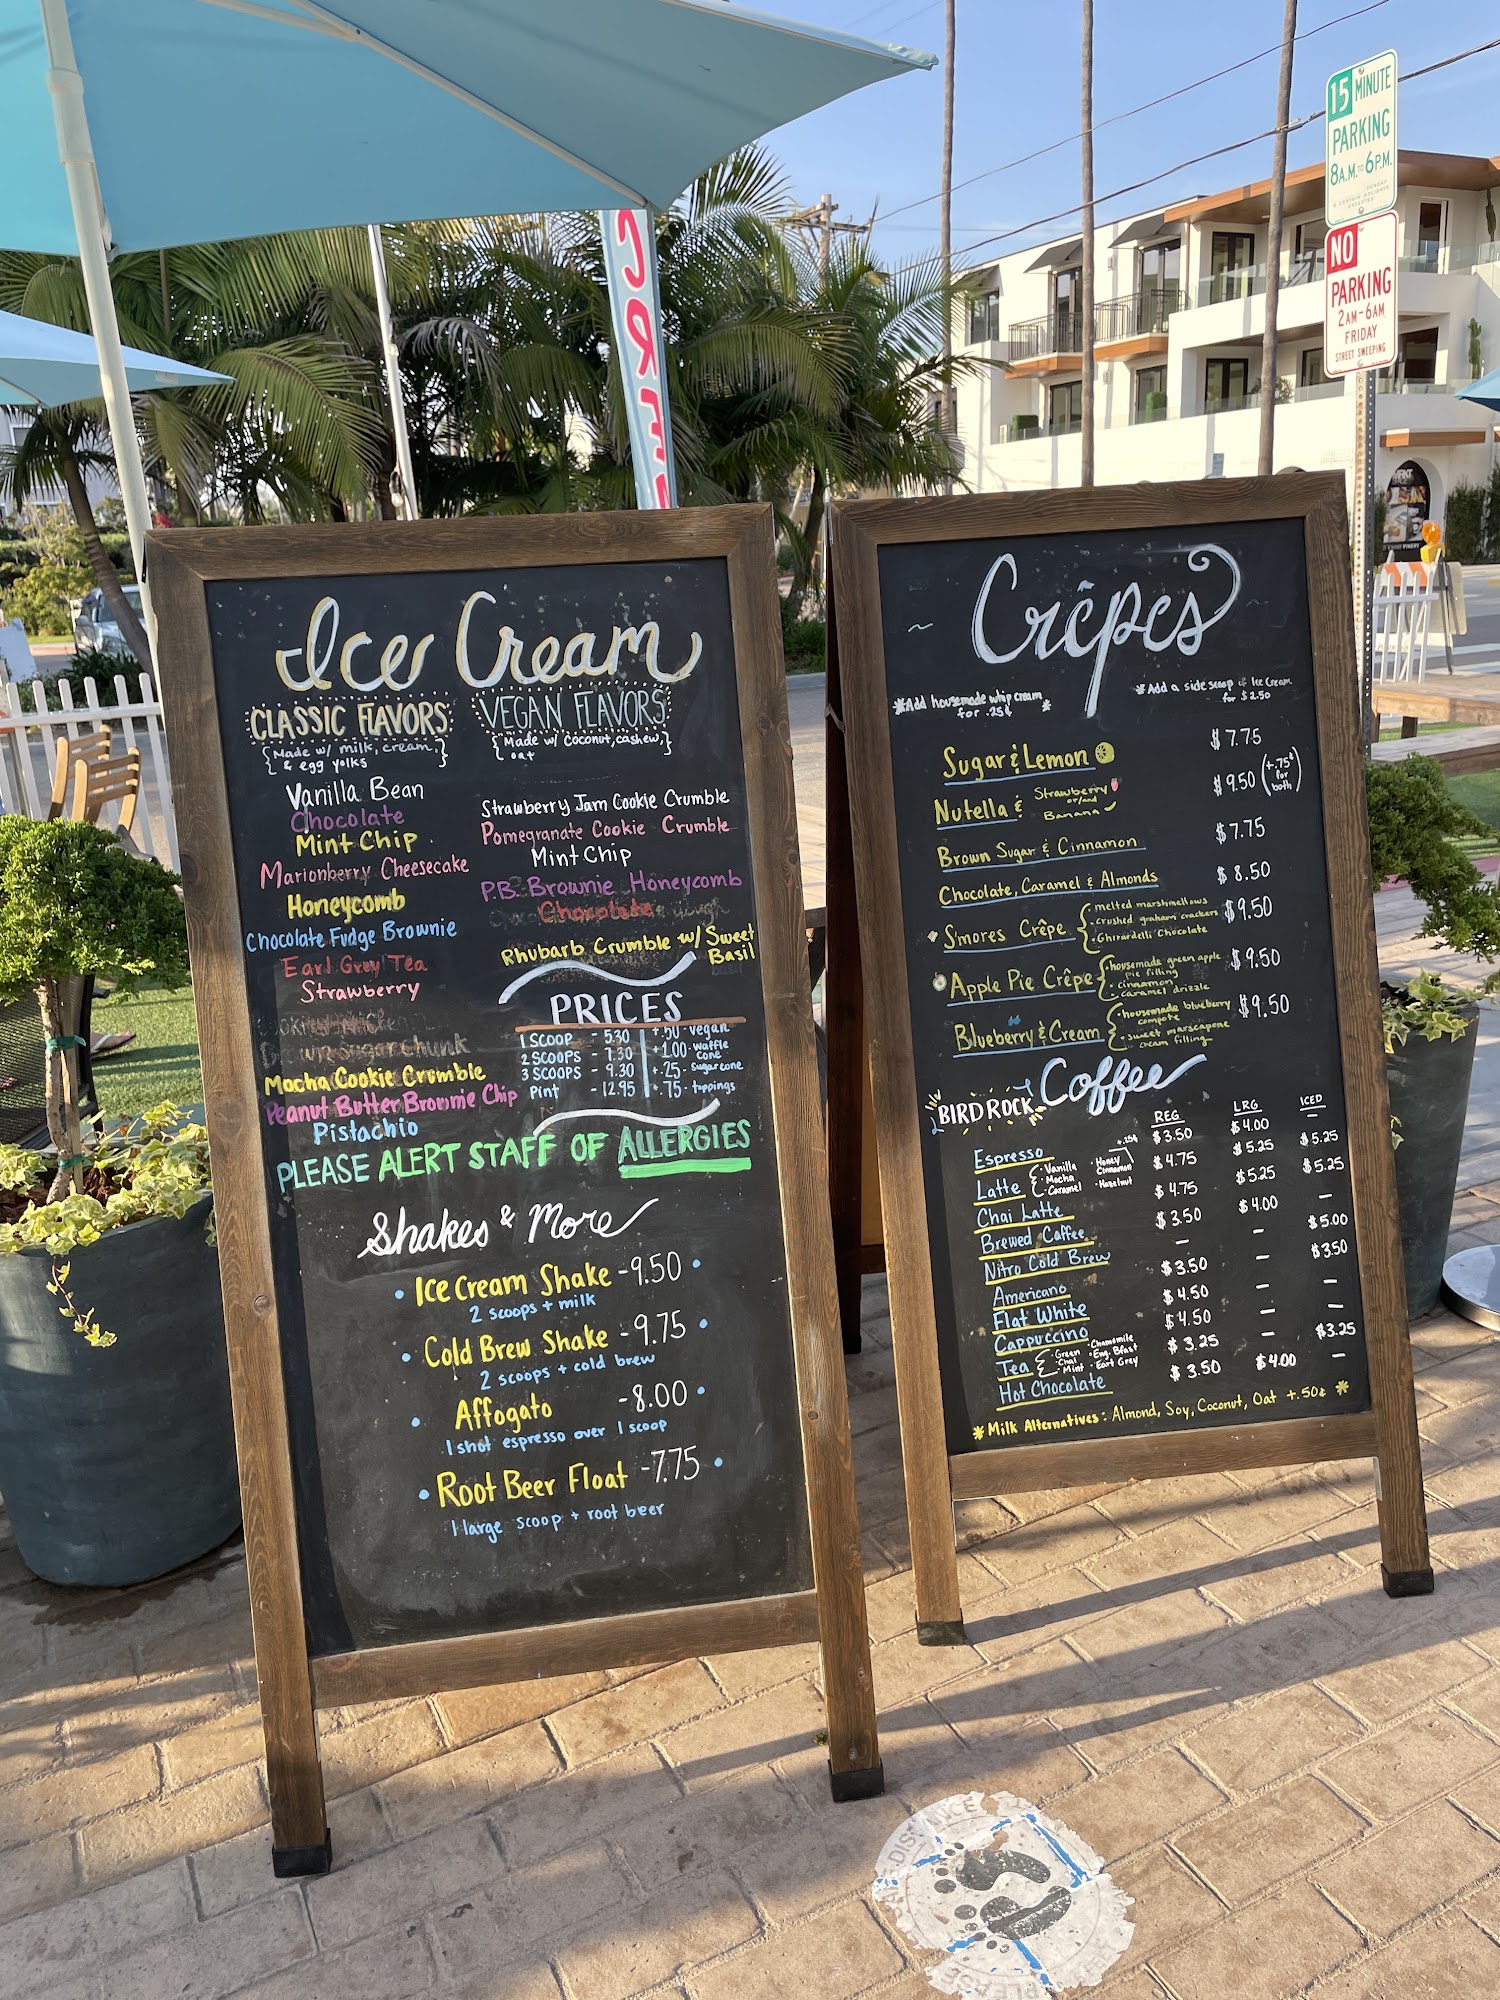 15 MINUTE
PARKING
8A.M. TO 6P.M.
SUNDAY
& CERTAIN HOLIDAYS
EXCEPTED
NO
PARKING
2AM-6AM
FRIDAY
STREET SWEEPING
Ice Cream
CLASSIC FLAVORS
{Made w/ milk, cream,
& egg yolks}
Vanilla Bean
Chocolate
Mint Chip
Marionberry Cheesecake
Honeycomb
Chocolate Fudge Brownie
Earl Grey Tea
Strawberry
Mocha Cookie Crumble
Peanut Butter Brownie Chip
Pistachio
VEGAN FLAVORS
{Made w/ Coconut, cashew,
oat}
Strawberry Jam Cookie Crumble
Pomegranate Cookie Crumble
Mint Chip
P.B. Brownie Honeycomb
Chocolate
Rhubarb Crumble w/ Sweet
Basil
PRICES
1 SCOOP - 5.30
2 SCOOPS - 7.30
3 SCOOPS - 9.30
Pint - 12.95
+.50 - vegan
+1.00 - waffle
cone
+.25 - sugar cone
+.75 - toppings
PLEASE ALERT STAFF OF ALLERGIES
Shakes & More
• Ice Cream Shake - 9.50 •
2 scoops + milk
• Cold Brew Shake - 9.75 •
2 scoops + cold brew
• Affogato - 8.00 •
1 shot espresso over 1 scoop
• Root Beer Float - 7.75 •
1 large scoop + root beer
Crêpes
*Add housemade whip cream
for .25¢ *
* Add a side scoop of Ice Cream
for $2.50
Sugar & Lemon $7.75
Nutella & Strawberry or/and Banana $9.50 (+.75¢ for both)
Brown Sugar & Cinnamon $7.75
Chocolate, Caramel & Almonds $8.50
S'mores Crêpe { • melted marshmellows $9.50
• crushed graham crackers
• Ghirardelli Chocolate
Apple Pie Crêpe { • housemade green apple $9.50
pie filling
• cinnamon
• caramel drizzle
Blueberry & Cream { • housemade blueberry $9.50
compote
• sweet marscapone
cream filling
BIRD ROCK Coffee
REG LRG ICED
Espresso $3.50 $4.00 —
Latte { • Vanilla • Honey Cinnamon +.25¢ $4.75 $5.25 $5.25
• Mocha
• Caramel • Hazelnut
Chai Latte $4.75 $5.25 $5.25
Brewed Coffee $3.50 $4.00 —
Nitro Cold Brew — — $5.00
Americano $3.50 — $3.50
Flat White $4.50 — —
Cappuccino $4.50 — —
Tea { • Green • Chamomile $3.25 — $3.25
• Chai • Eng. Bfast
• Mint • Earl Grey
Hot Chocolate $3.50 $4.00 —
* Milk Alternatives: Almond, Soy, Coconut, Oat +.50¢ *